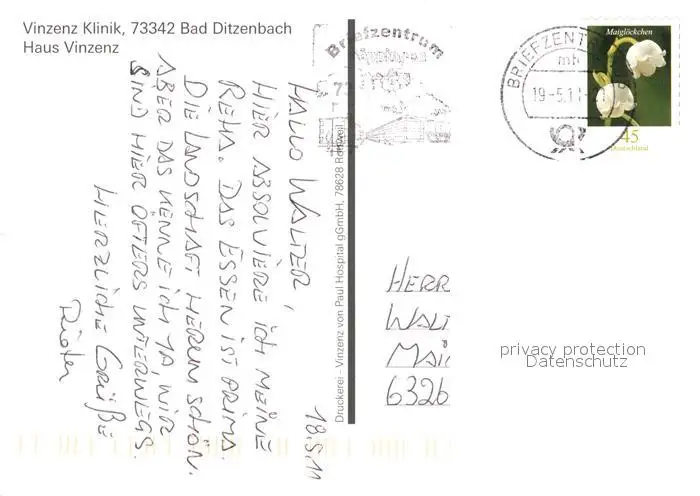 Vinzenz Klinik, 73342 Bad Ditzenbach
Haus Vinzenz
18.5.11
HALLO WALTER,
HIER ABSOLVIERE ICH MEINE
REHA. DAS ESSEN IST PRIMA.
DIE LANDSCHAFT HERUM SCHÖN.
ABER DAS KENNE ICH JA WIR
SIND HIER ÖFTERS UNTERWEGS.
HERZLICHE GRÜßE
Dieter
Druckerei - Vinzenz von Paul Hospital gGmbH, 78628 Rottweil
Briefzentrum
73
BRIEFZENTR
mb
19-5.11
Maiglöckchen
45
Deutschland
HERR
WALT
MAI
6326
privacy protection
Datenschutz